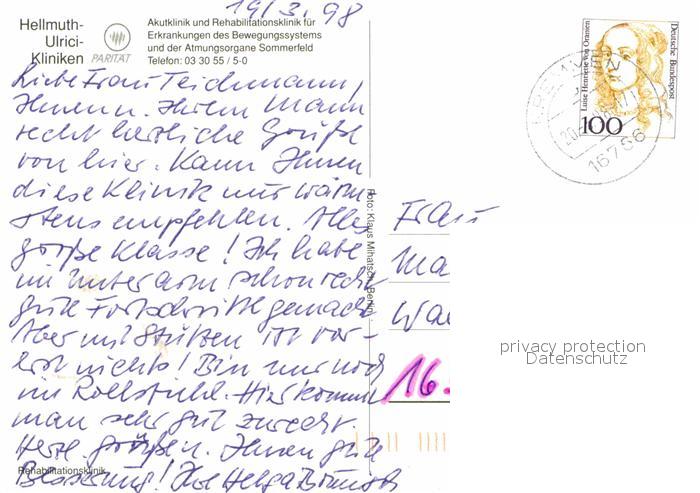 19/3. 98
Hellmuth-
Ulrici-
Kliniken PARITÄT
Akutklinik und Rehabilitationsklinik für
Erkrankungen des Bewegungssystems
und der Atmungsorgane Sommerfeld
Telefon: 03 30 55 / 5-0
Liebe Frau Teichmann,
Ihnen u. Ihrem Mann
recht herzliche Grüße
von hier. Kann Ihnen
diese Klinik nur wärm
stens empfehlen. Alles
große Klasse! Ich habe
im Unterarm schon recht
gute Fortschritte gemacht
Aber mit Stützen ist vor-
erst nichts! Bin nur noch
im Rollstuhl. Hier kommt
man sehr gut zurecht.
Herzl. grüßen. Ihnen gute
Besserung! Ihre Helga
Rehabilitationsklinik
Foto: Klaus Mihatsch, Berlin
Frau
Ma
Wa
16.
Deutsche Bundespost
Luise Henriette von Oranien
100
KREMMEN
16766
privacy protection
Datenschutz